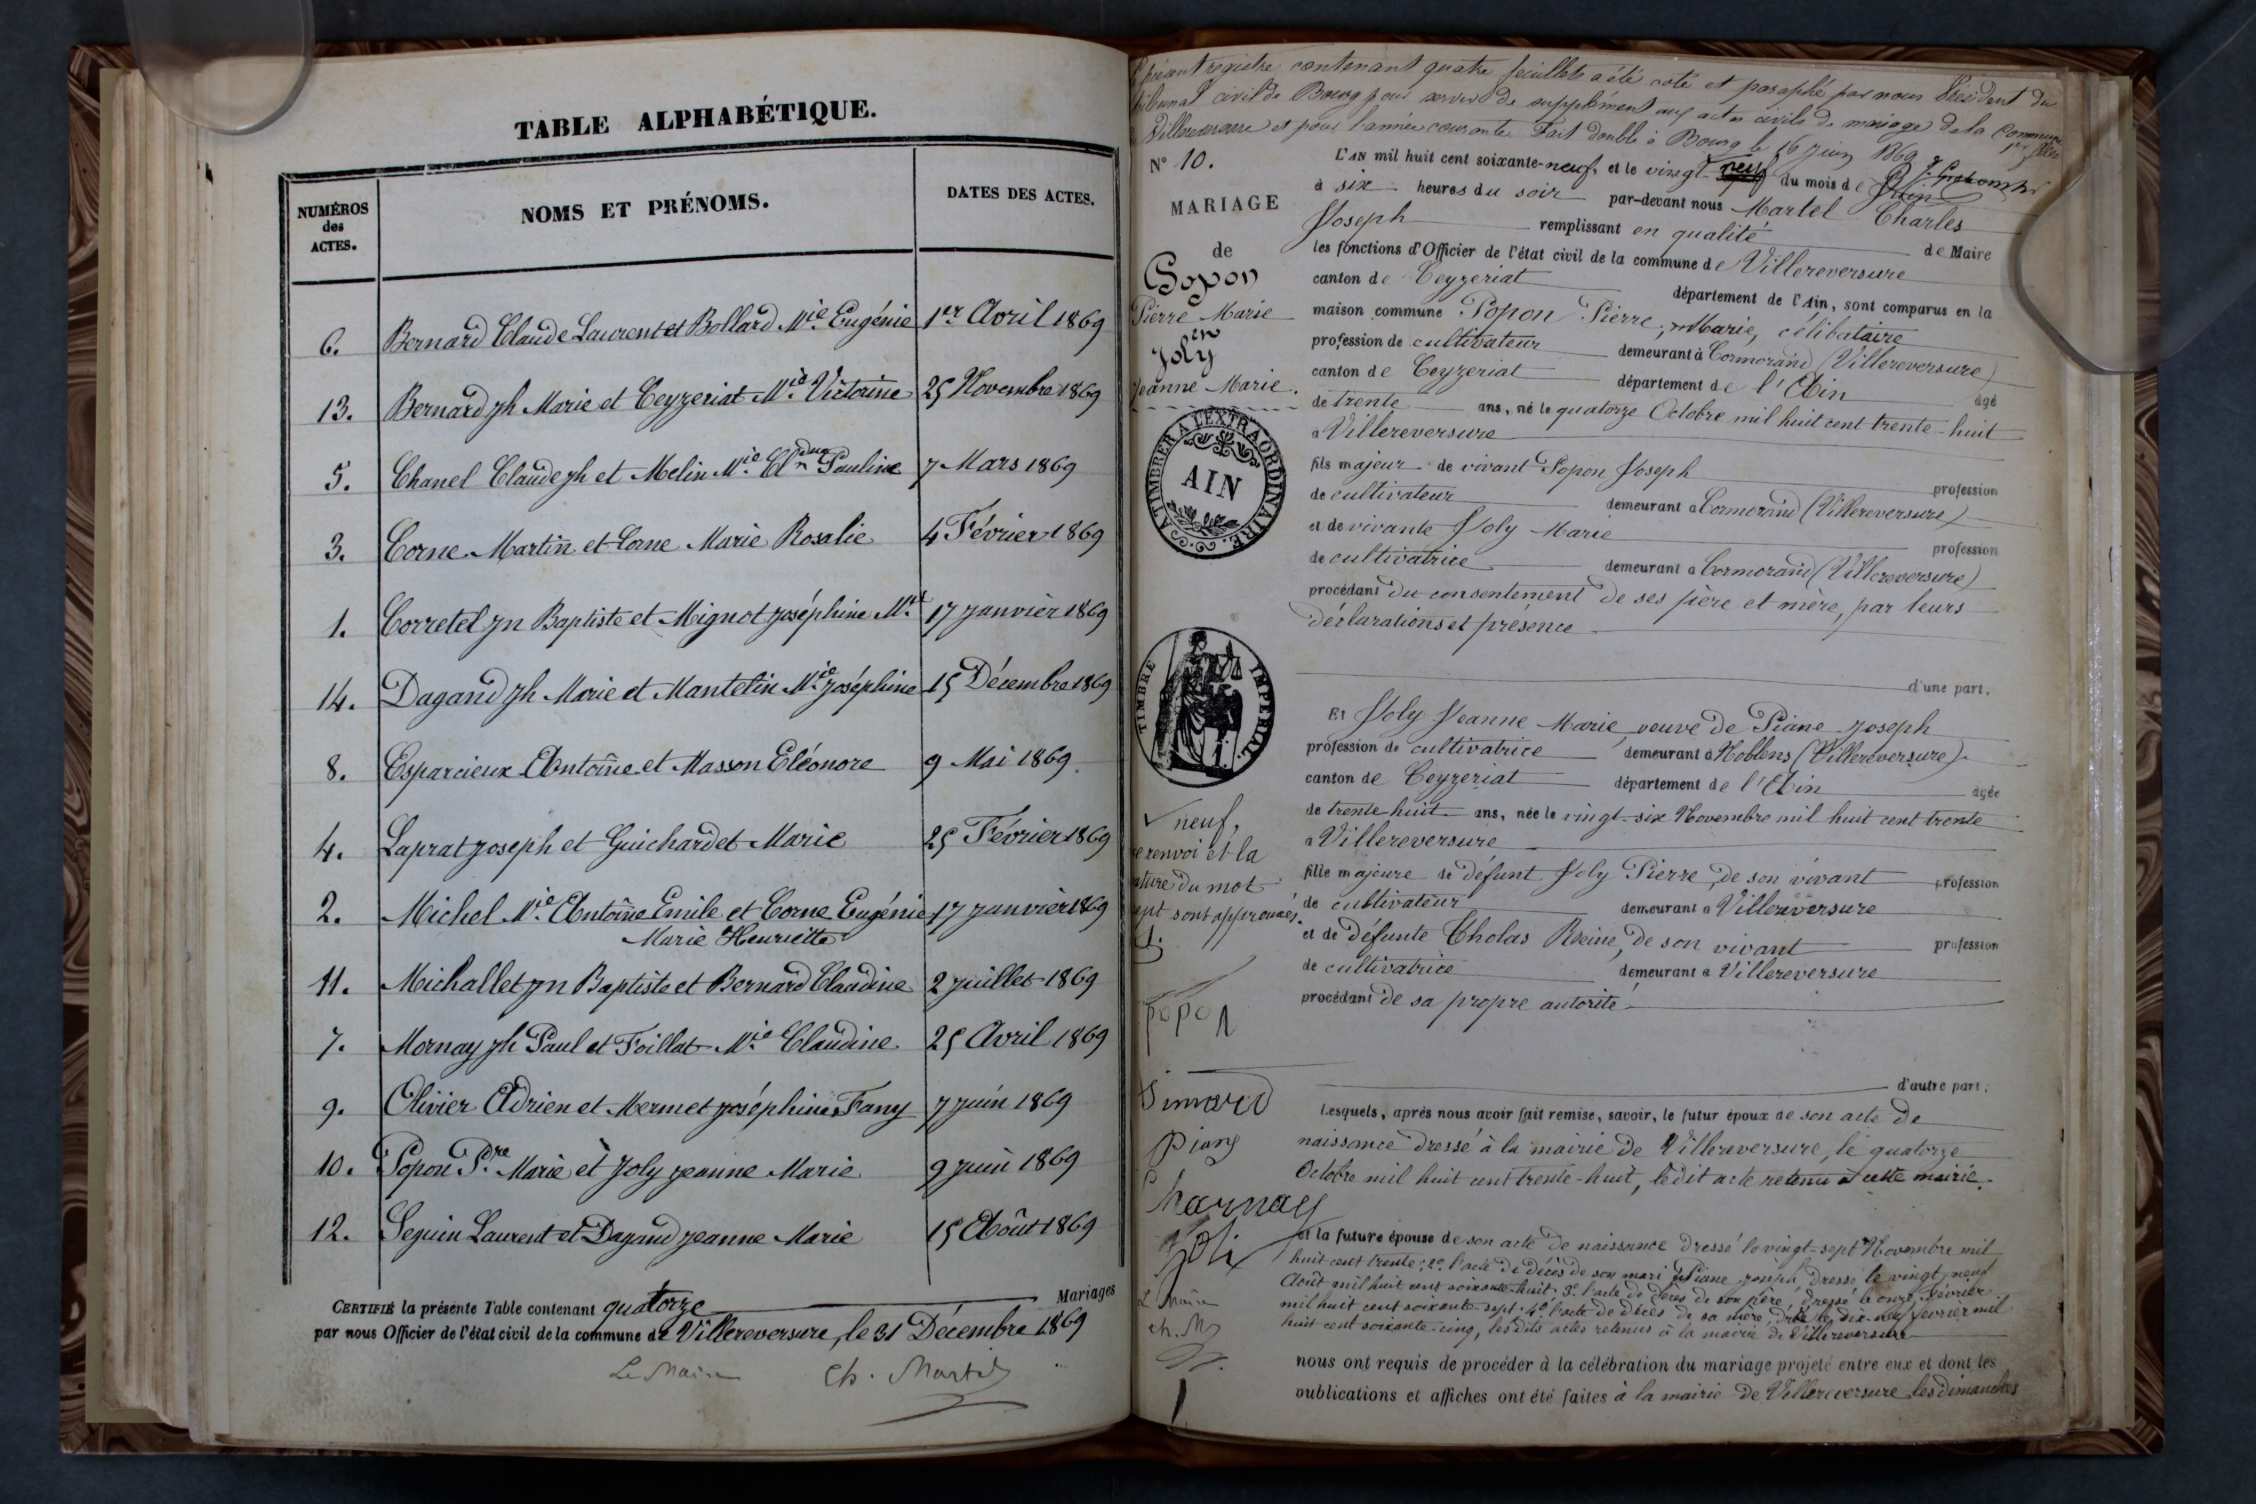 TABLE ALPHABÉTIQUE.
NUMÉROS des ACTES.
NOMS ET PRÉNOMS.
DATES DES ACTES.
6. Bernard Claude Laurent et Bollard Mie Eugénie 1er Avril 1869
13. Bernard Jh Marie et Ceyzeriat Mie Victorine 25 Novembre 1869
5. Chanel Claude Jh et Melin Mie Cldine Pauline 7 Mars 1869
3. Corne Martin et Corne Marie Rosalie 4 Février 1869
1. Corretel Jn Baptiste et Mignot Joséphine Mie 17 Janvier 1869
14. Dagand Jh Marie et Mantelin Mie Joséphine 15 Décembre 1869
8. Esparcieux Antoine et Masson Eléonore 9 Mai 1869
4. Laprat Joseph et Guichardet Marie 25 Février 1869
2. Michel Mie Antoine Emile et Corne Eugénie 17 Janvier 1869
Marie Henriette
11. Michallet Jn Baptiste et Bernard Claudine 2 Juillet 1869
7. Mornay Jh Paul et Foillat Mie Claudine 25 Avril 1869
9. Olivier Adrien et Mermet Joséphine Fany 7 Juin 1869
10. Popon Pre Marie et Joly Jeanne Marie 9 Juin 1869
12. Seguin Laurent et Dagand Jeanne Marie 15 Août 1869
CERTIFIÉ la présente Table contenant quatorze Mariages
par nous Officier de l'état civil de la commune de Villereversure, le 31 Décembre 1869
Le Maire Ch. Martel
présent registre contenant quatre feuillets a été coté et paraphé par nous Président du
tribunal civil de Bourg pour servir de supplément aux actes civils de mariage de la Commune
Villereversure et pour l'année courante. Fait double à Bourg le 16 Juin 1869
N° 10.
MARIAGE
de
Popon
Pierre Marie
en
Joly
Jeanne Marie.
A TIMBRER A L'EXTRAORDINAIRE.
AIN
TIMBRE IMPERIAL.
neuf,
renvoi et la
du mot
sept sont approuvés.
popon
Simard
piany
Charnay
Joli
Le Maire
Ch. M
L'AN mil huit cent soixante-neuf, et le vingt neuf du mois de Juin
à six heures du soir par-devant nous Martel Charles
Joseph remplissant en qualité de Maire
les fonctions d'Officier de l'état civil de la commune de Villereversure
canton de Ceyzeriat département de l'Ain, sont comparus en la
maison commune Popon Pierre, Marie, célibataire
profession de cultivateur demeurant à Cormorand (Villereversure)
canton de Ceyzeriat département de l'Ain âgé
de trente ans, né le quatorze Octobre mil huit cent trente-huit
à Villereversure
fils majeur de vivant Popon Joseph profession
de cultivateur demeurant à Cormorand (Villereversure)
et de vivante Joly Marie profession
de cultivatrice demeurant à Cormorand (Villereversure)
procédant du consentement de ses père et mère, par leurs
déclarations et présence
d'une part.
Et Joly Jeanne Marie veuve de Piane Joseph
profession de cultivatrice demeurant à Noblens (Villereversure)
canton de Ceyzeriat département de l'Ain âgée
de trente huit ans, née le vingt-six Novembre mil huit cent trente
à Villereversure
fille majeure de défunt Joly Pierre, de son vivant profession
de cultivateur demeurant à Villereversure
et de défunte Cholas Reine, de son vivant profession
de cultivatrice demeurant à Villereversure
procédant de sa propre autorité
d'autre part.
Lesquels, après nous avoir fait remise, savoir, le futur époux de son acte de
naissance dressé à la mairie de Villereversure, le quatorze
Octobre mil huit cent trente-huit, ledit acte retenu à cette mairie.
et la future épouse de son acte de naissance dressé le vingt-sept Novembre mil
huit cent trente; 2° l'acte de décès de son mari Piane Joseph dressé le vingt neuf
Août mil huit cent soixante-huit; 3° l'acte de décès de son père, dressé le onze Février
mil huit cent soixante-sept; 4° l'acte de décès de sa mère, le dix-neuf février mil
huit cent soixante-cinq, lesdits actes retenus à la mairie de Villereversure
nous ont requis de procéder à la célébration du mariage projeté entre eux et dont les
publications et affiches ont été faites à la mairie de Villereversure les dimanches